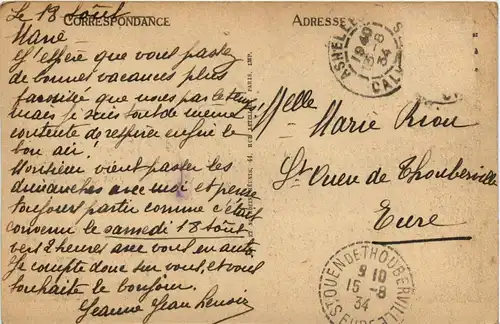 Le 13 Août
CORRESPONDANCE
Marie
J'espère que vous passez
de bonnes vacances plus
favorisé que nous par le temps!
mais je suis tout de même
contente de respirer enfin le
bon air!
Monsieur vient passer les
dimanches avec moi et pense
toujours partir comme c'était
convenu le samedi 18 Août
vers 2 heures avec vous en auto.
Je compte donc sur vous, et vous
souhaite le bonjour.
Jeanne Jean Renoir
ADRESSE
ASNELLES
1940
13-8
34
CALV
Melle
Marie Riou
St Ouen de Thouberville
Eure
St OUEN DE THOUBERVILLE
9 10
15-8
34
EURE